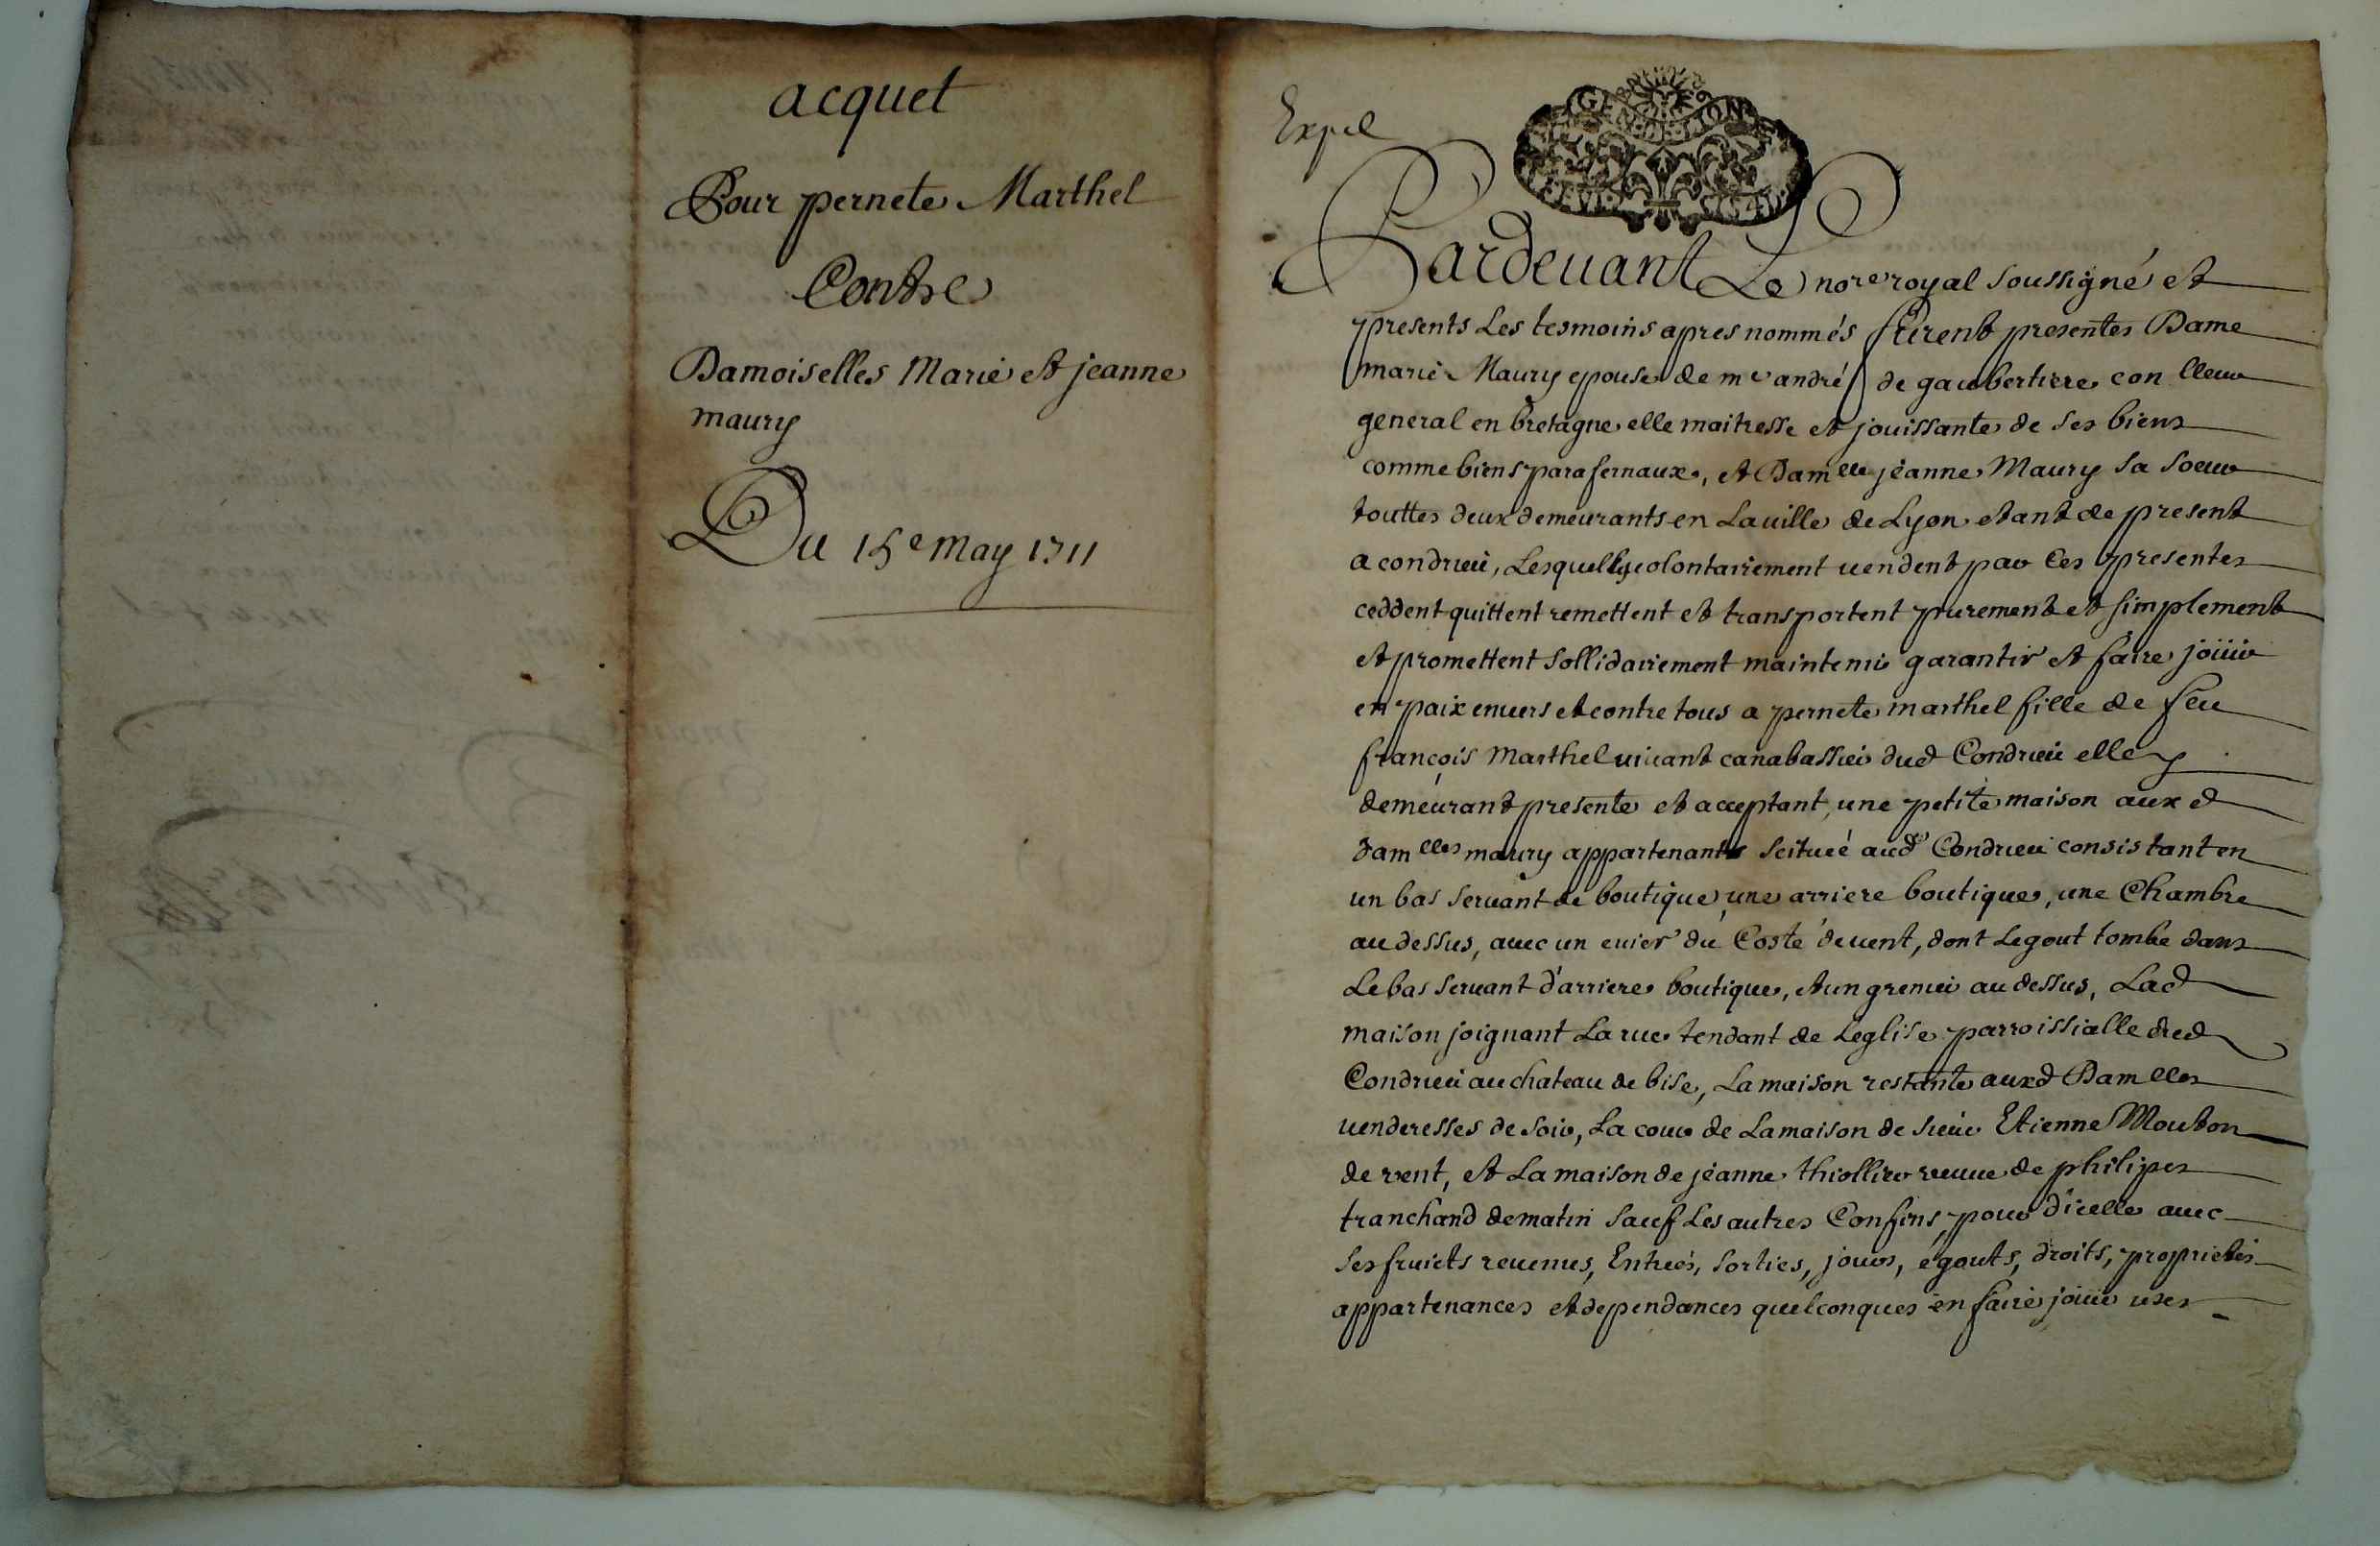 acquet
Pour pernete Marthel
Contre
Damoiselles Marie et jeanne
maury
Du 15e May 1711
Pardevant Le nore royal soussigné et
presents Les tesmoins apres nommés furent presentes Dame
marie Maury epouse de me andré de gaubertiere con lleur
general en bretagne elle maitresse et jouissante de ses biens
comme biens parafernaux, et Damlle jeanne Maury sa soeur
touttes deux demeurants en La ville de Lyon etant de present
a condrieu, Lesquelles volontairement vendent par Ces presentes
ceddent quittent remettent et transportent purement et simplement
et promettent sollidairement maintenir garantir et faire joüir
en paix envers et contre tous a pernete marthel fille de feu
françois Marthel vivant canabassier dud Condrieu elle y
demeurant presente et acceptant, une petite maison aux d
damlles maury appartenants scituée aud Condrieu consistant en
un bas servant de boutique, une arriere boutique, une Chambre
au dessus, avec un evier du Costé de vent, dont Legout tombe dans
Le bas servant d'arriere boutique, et un grenier au dessus, Lad
maison joignant La rue tendant de Leglise parroissialle dud
Condrieu au chateau de bise, La maison restante auxd Damlles
venderesses de soir, La cour de La maison de sieur Etienne Mouton
de vent, et La maison de jeanne thiollier veuve de philipes
tranchand de matin sauf Les autres Confins, pour d'icelle avec
ses fruicts revenus, Entrées, sorties, jours, égouts, droits, proprietés
appartenances et dependances quelconques en faire joüir user